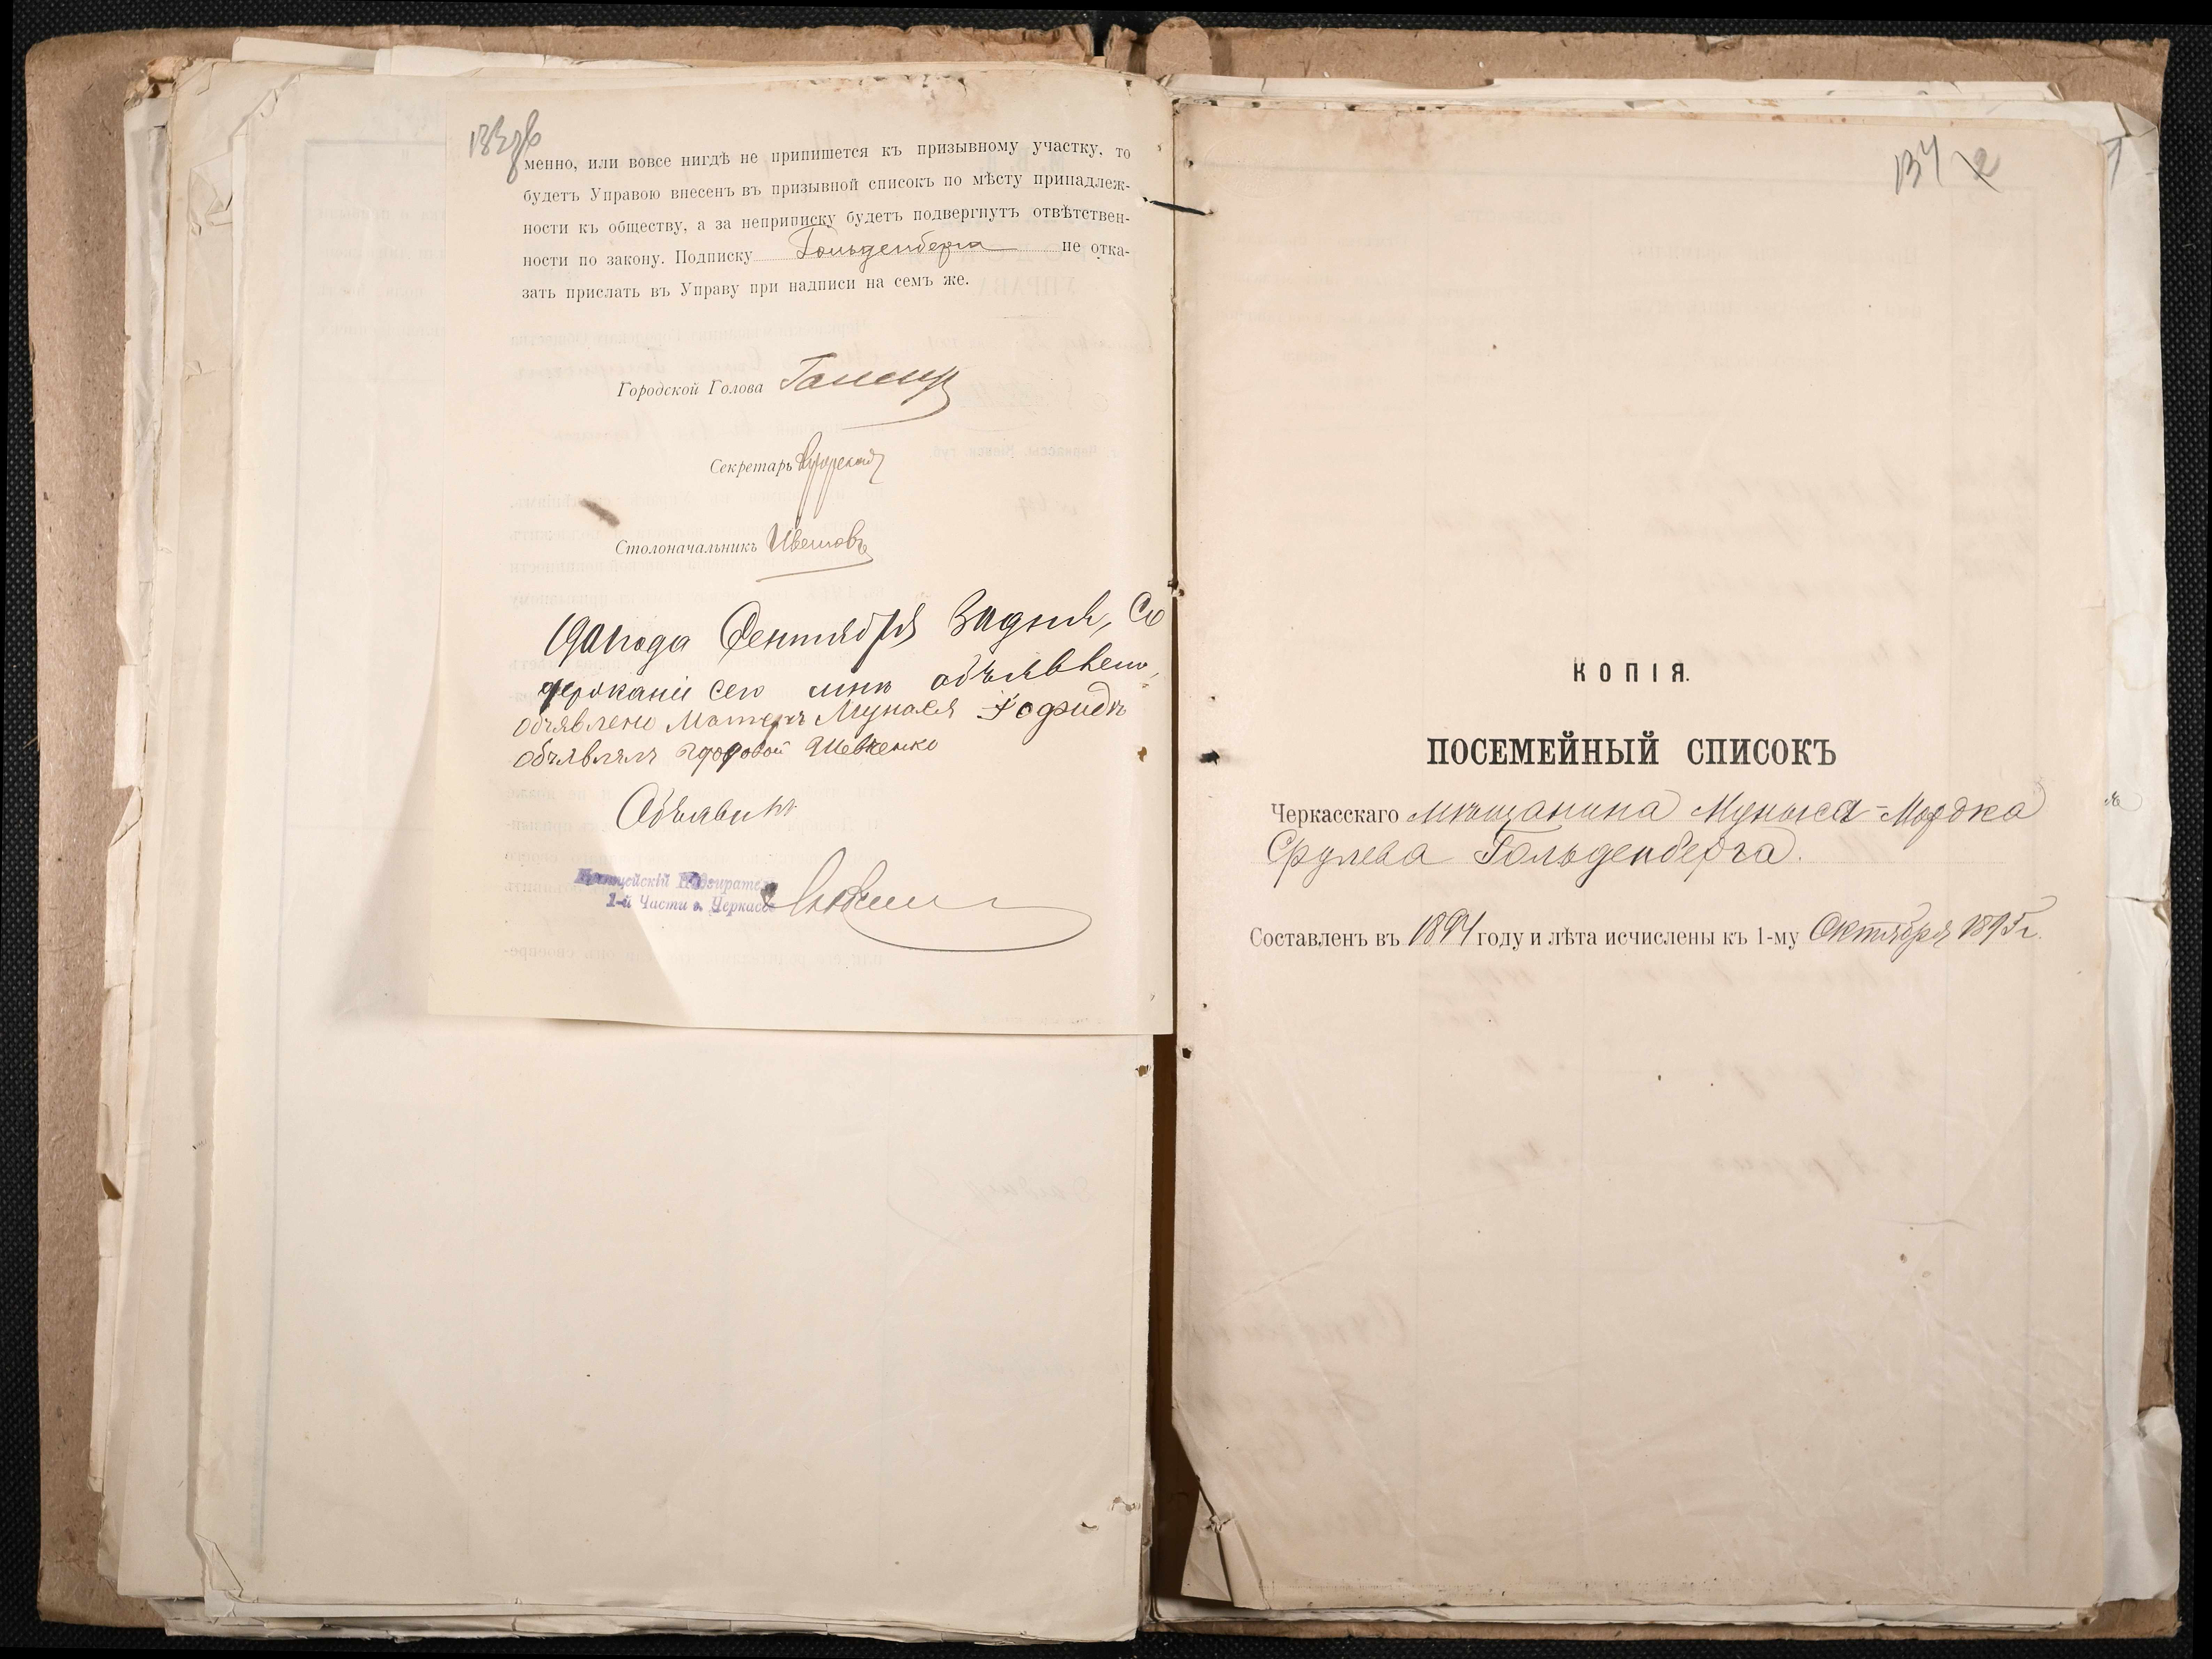 133об
менно, или вовсе нигдѣ не припишется къ призывному участку, то
будетъ Управою внесенъ въ призывной списокъ по мѣсту принадлеж-
ности къ обществу, а за неприписку будетъ подвергнутъ отвѣтствен-
ности по закону. Подписку Гольденберга не отка-
зать прислать въ Управу при надписи на семъ же.
Городской Голова
Секретарь
Столоначальникъ
1901 года Сентября 3 дня, Со
держаніе сего мнѣ объявлено,
объявлено Матери Мунася
объявлялъ городовой Шевченко
Объявилъ
Полицейскій Надзиратель
1-й Части г. Черкассъ
134
2
КОПІЯ.
ПОСЕМЕЙНЫЙ СПИСОКЪ
Черкасскаго мѣщанина Муныса-Мордка
Срулева Гольденберга.
Составленъ въ 1894 году и лѣта исчислены къ 1-му Октября 1895 г.